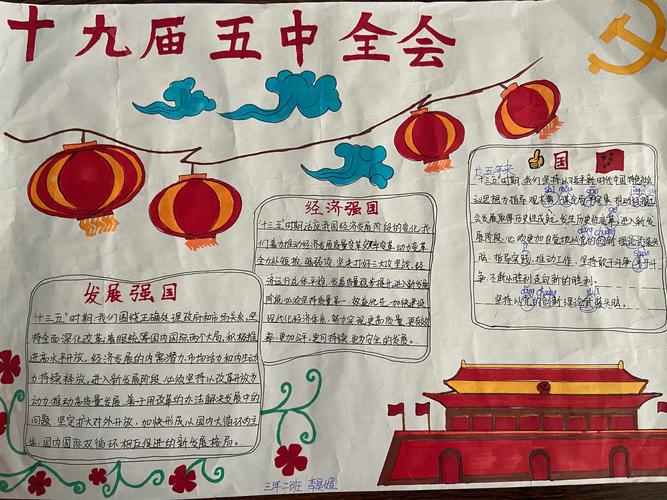 十九届五中全会
发展强国
"十三五"时期,我们围绕正确处理政府和市场关系,坚
持全面深化改革,着眼统筹国内国际两个大局,积极推
进高水平开放,经济发展的内需潜力市场活力和内生动
力持续释放,进入新发展阶段,必须坚持以改革开放为
动力推动高质量发展,善于用改革的办法解决发展中的
问题,坚定扩大对外开放,加快形成以国内大循环为主
体、国内国际双循环相互促进的新发展格局。
经济强国
"十三五"时期适应我国经济发展阶段的变化,我
们着力推动经济发展质量变革效率变革动力变革
全力补短板,强弱项,坚决打好三大攻坚战,经
济运行总体平稳,发展质量稳步提升进入新发展
阶段,必须坚持质量第一,效益优先,加快建设
现代化经济体系,努力实现更高质量,更有效
率、更加公平,更可持续,更为安全的发展。
国
五年来
十三五"时期,我们坚持以习近平新时代中国特色社会
主义思想为指导
发展阶段,必须更加自觉地从党的创新理论
脑、指导实践、推动工作,坚持敢于斗争
争,不断从胜利走向新的胜利。
坚持以党的创新理论武装头脑。
三年二班 李